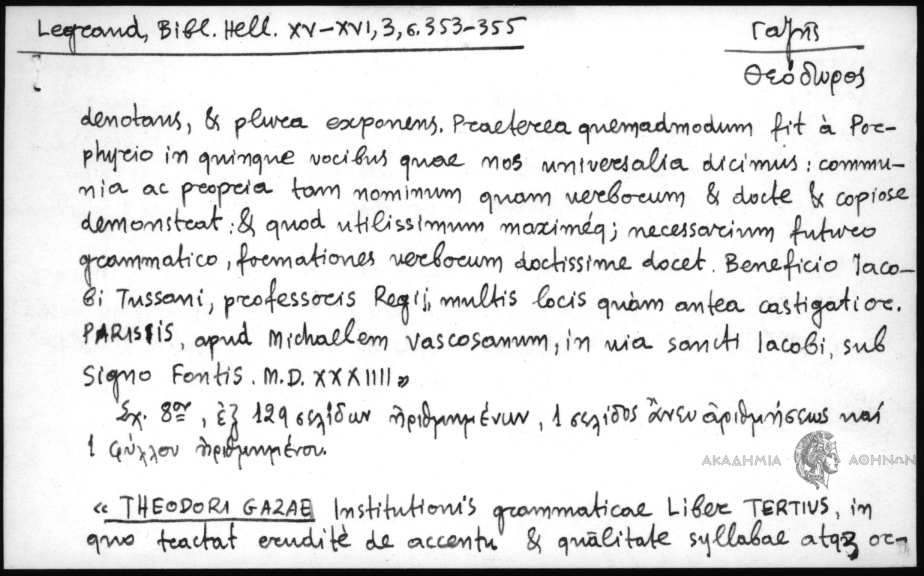 Legrand, Bibl. Hell. XV-XVI, 3, σ. 353-355
Γαζῆς
Θεόδωρος
denotans, & plura exponens. Praeterea quemadmodum fit à Por-
phyrio in quinque vocibus quae nos universalia dicimus: commu-
nia ac propria tam nominum quam uerborum & docte & copiose
demonstrat: & quod utilissimum maximéq; necessarium futuro
grammatico, formationes uerborum doctissime docet. Beneficio Iaco-
bi Tussani, professoris Regij, multis locis quàm antea castigatior.
PARISIIS, apud Michaelem Vascosanum, in uia sancti Iacobi, sub
signo Fontis. M.D. XXXIIII»
Σχ. 8ον, ἐξ 129 σελίδων ἠριθμημένων, 1 σελίδος ἄνευ ἀριθμήσεως καί
1 φύλλου ἠριθμημένου.
ΑΚΑΔΗΜΙΑ ΑΘΗΝΩΝ
« THEODORI GAZAE Institutionis grammaticae Liber TERTIUS, in
quo tractat eruditè de accentu & quālitate syllabae atqȝ or-